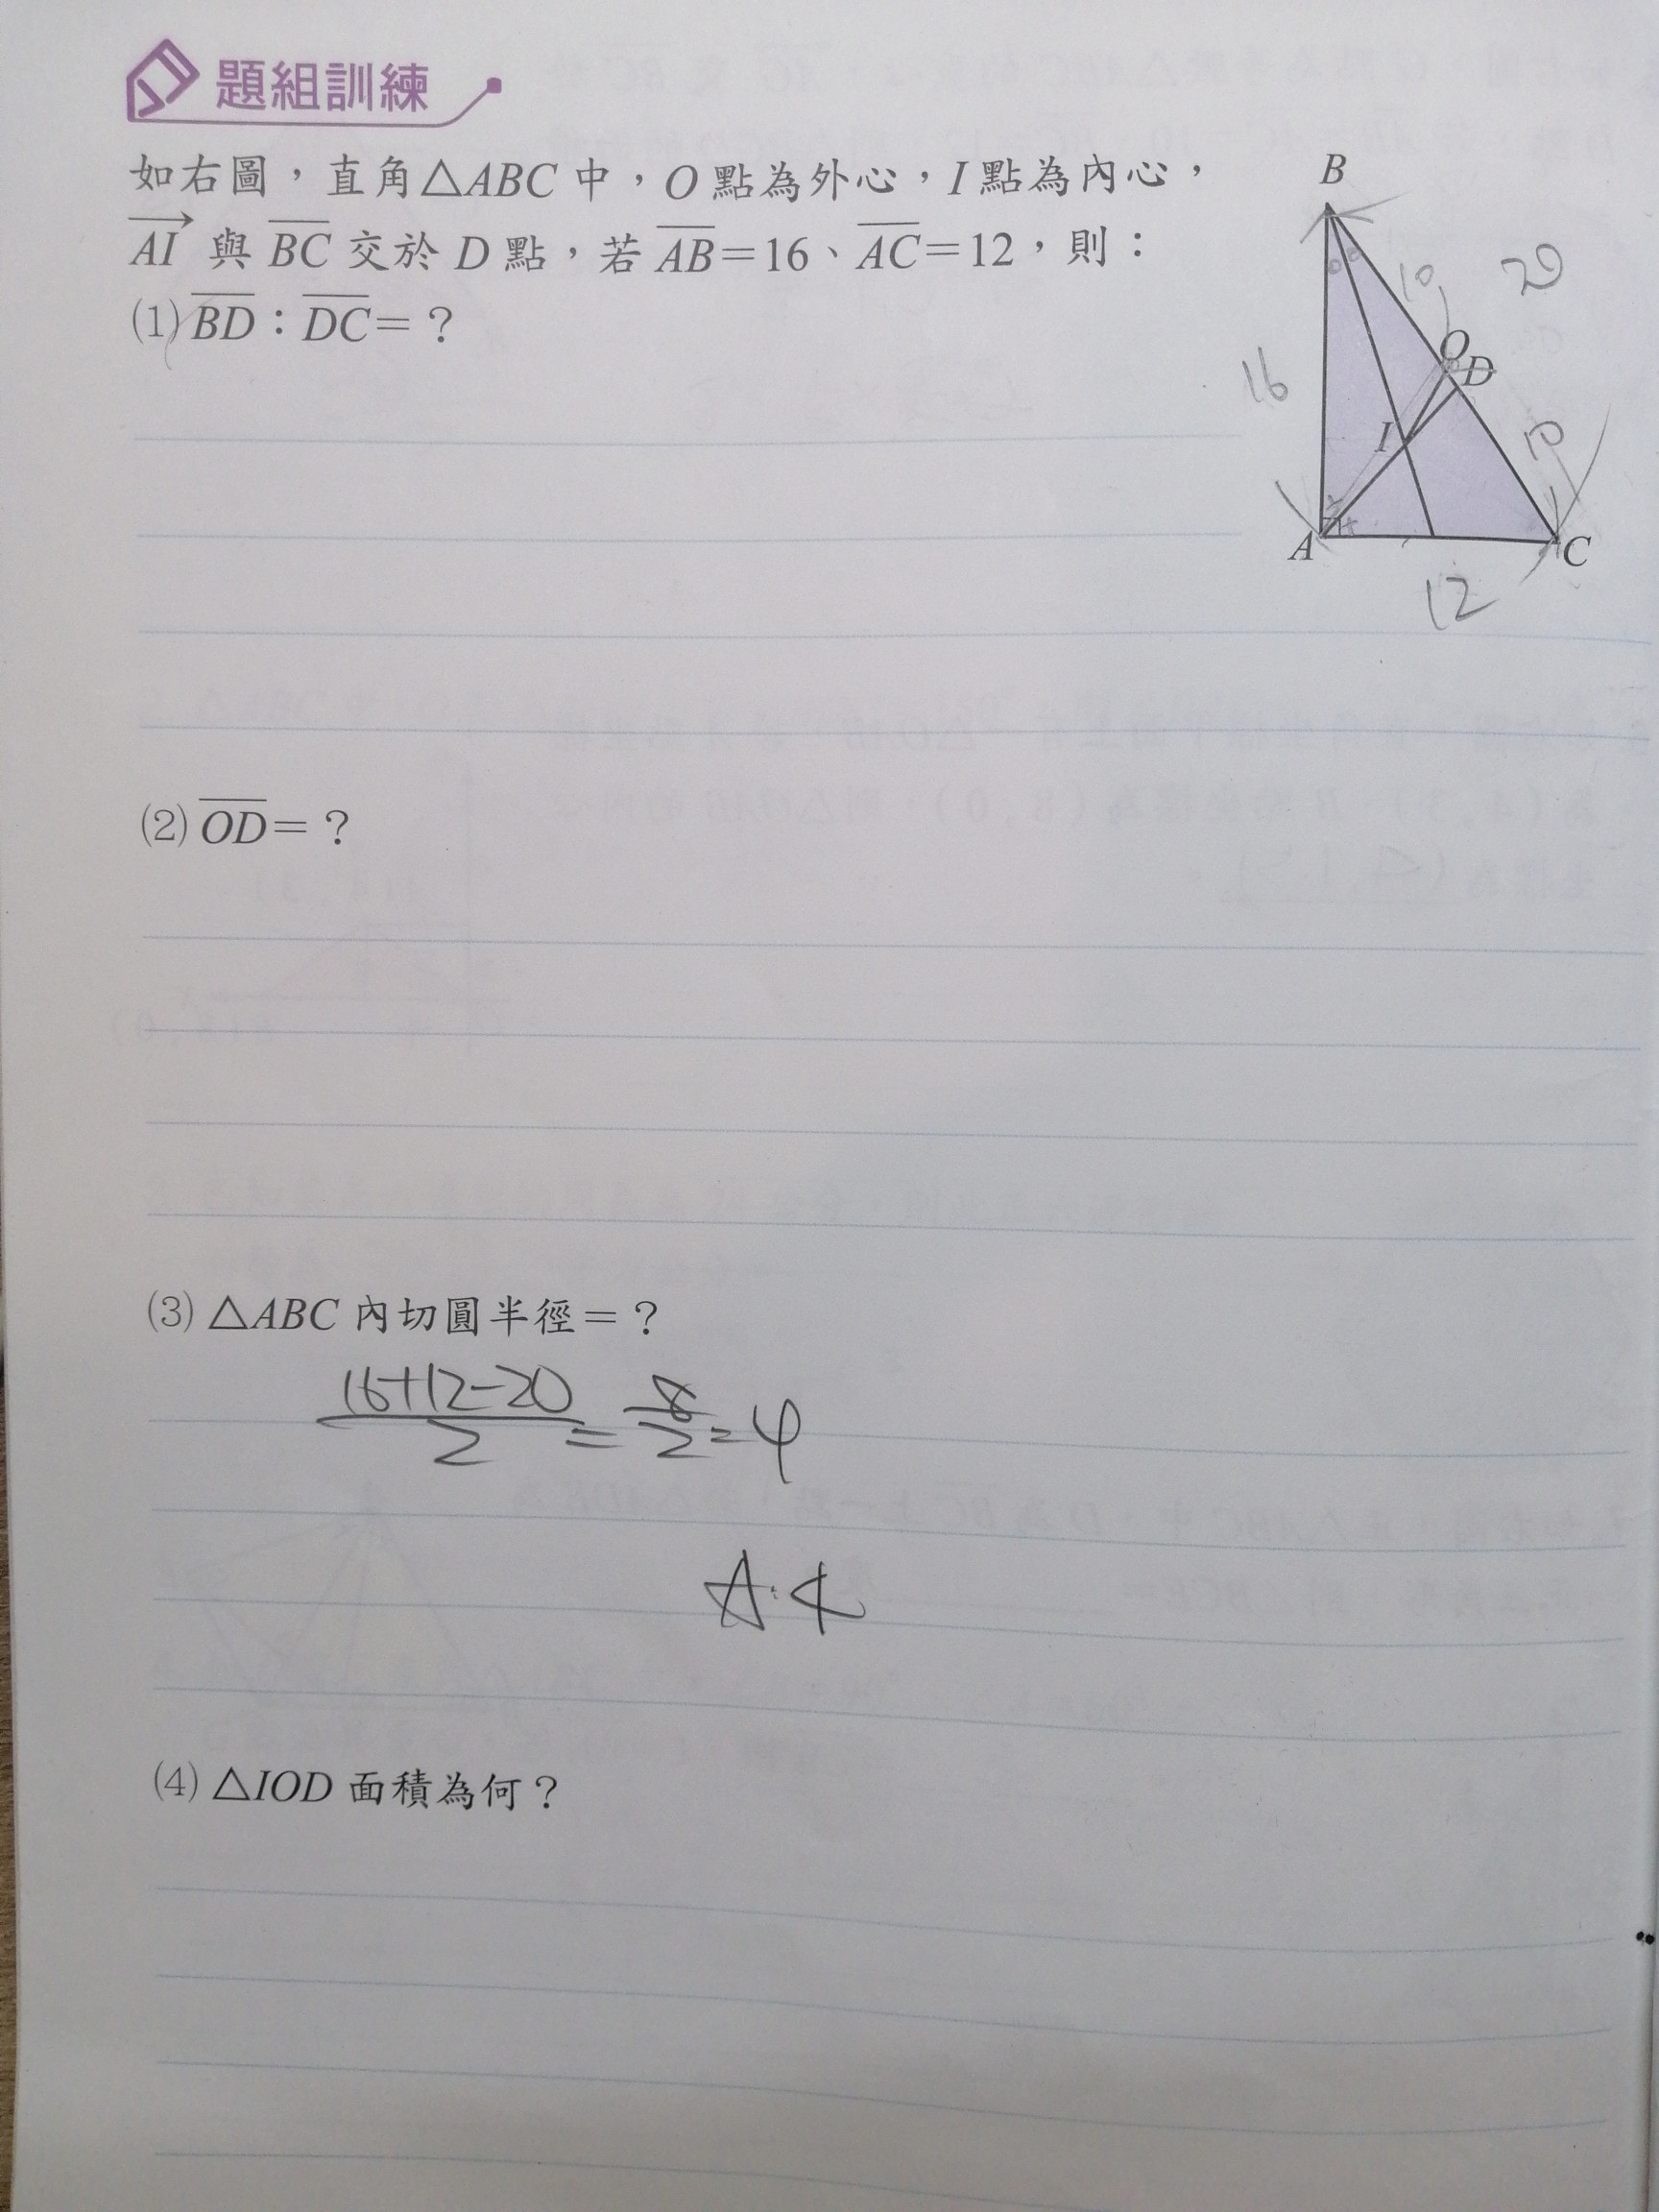 題組訓練
如右圖，直角△ABC 中，O 點為外心，I 點為內心，
AI 與 BC 交於 D 點，若 AB=16、AC=12，則：
(1) BD：DC=？
B
20
10
O
D
16
I
10
A
C
12
(2) OD=？
(3) △ABC 內切圓半徑=？
16+12-20/2 = 8/2 = 4
A:4
(4) △IOD 面積為何？